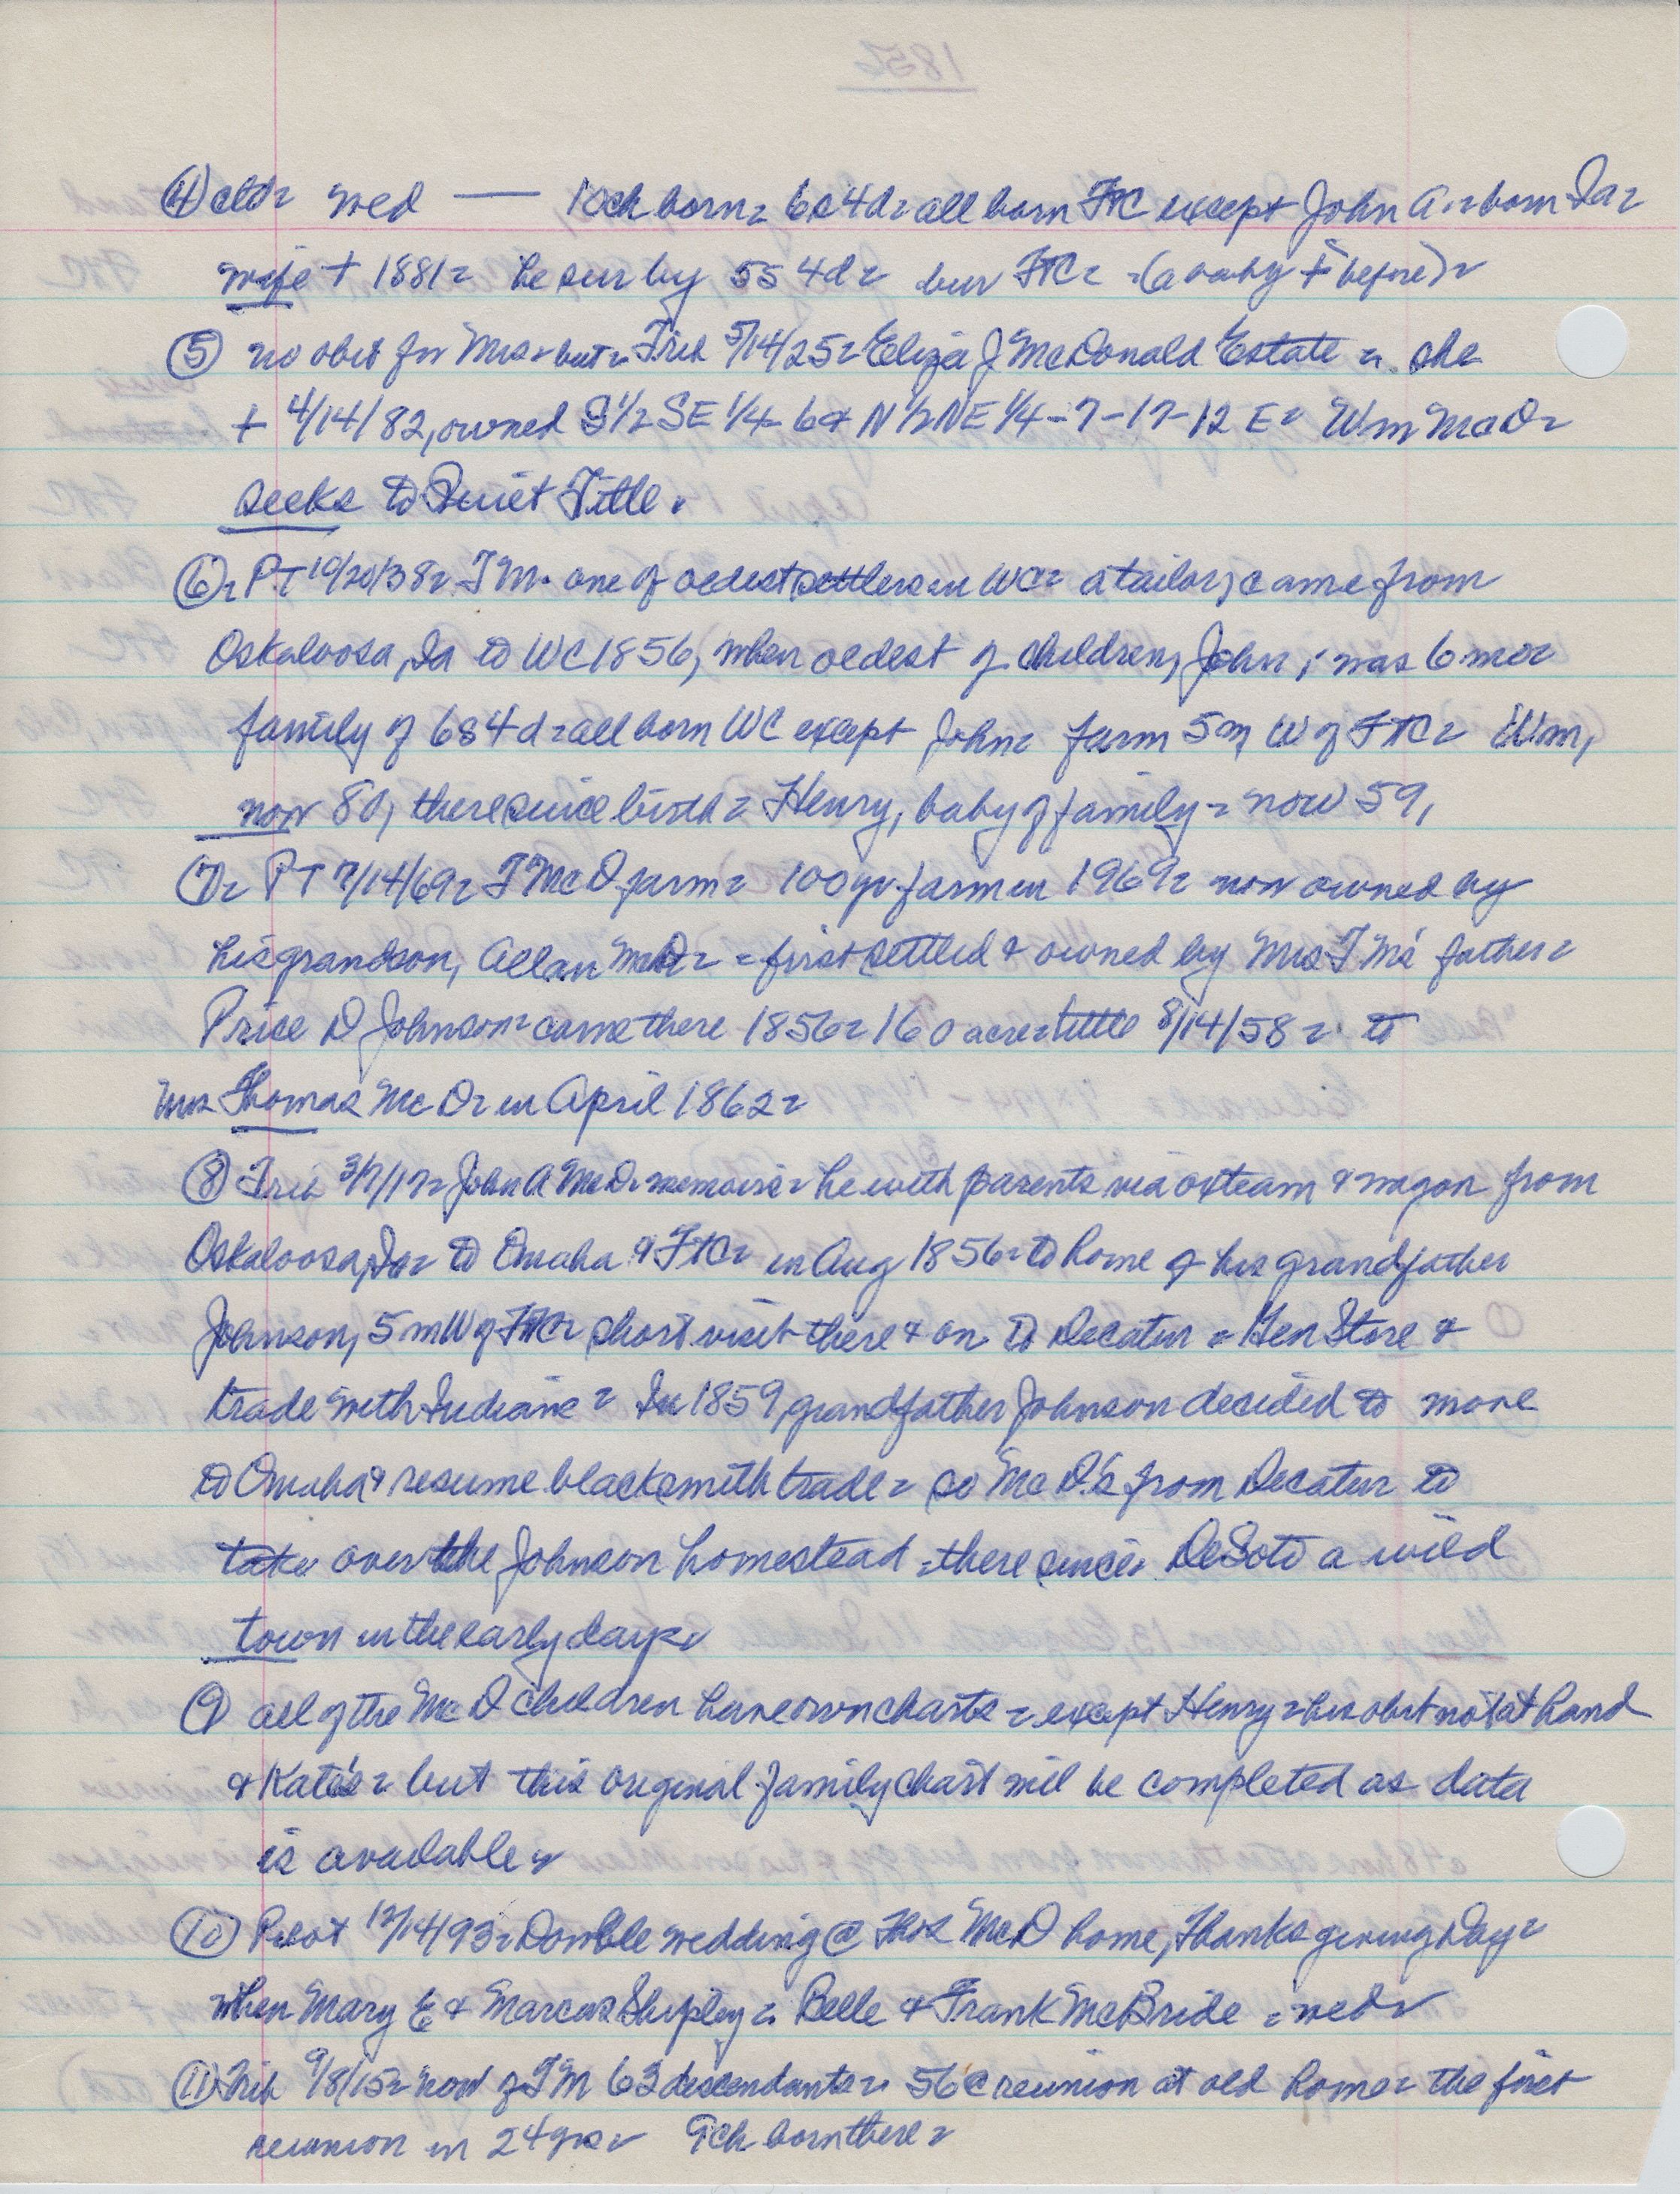 ④ ctd= wed — 10ch born= 6s 4d= all born FTC except John A.= born Ia=
wife + 1881= he sur by 5s 4d= bur FTC= (a baby + before)=
⑤ no obit for Mrs= but= Trib 5/14/25= Eliza J McDonald Estate =. she
+ 4/14/82, owned S 1/2 SE 1/4 6 & N 1/2 NE 1/4-7-17-12 E= Wm McD=
seeks to Quiet Title.
⑥= PT 10/20/38= TM. one of oldest settlers in WC= a tailor, came from
Oskaloosa, Ia to WC 1856, when oldest of children, John, was 6 mo=
family of 6s 4d= all born WC except John= farm 5m W of FTC= Wm,
now 80, there since birth= Henry, baby of family= now 59,
⑦= PT 7/14/69= T McD farm= 100 yr farm in 1969= now owned by
his grandson, Allan McD= = first settled & owned by Mrs TM's father=
Price D Johnson= came there 1856= 160 acre= title 8/14/58=. to
Mrs Thomas McD= in April 1862=
⑧ Trib 3/7/17= John A McD= memoirs= he with parents via oxteam & wagon from
Oskaloosa, Ia= to Omaha & FTC= in Aug 1856= to home of his grandfather
Johnson, 5 m W of FTC= short visit there & on to Decatur = Gen Store &
trade with Indians= In 1859, grandfather Johnson decided to move
to Omaha & resume blacksmith trade= so McD's from Decatur to
take over the Johnson homestead =there since= DeSoto a wild
town in the early days=
⑨ all of the McD children have own charts = except Henry= his obit not at hand
& Kate's= but this original family chart will be completed as data
is available=
⑩ Pilot 12/14/93= Double wedding @ Thos McD home, Thanksgiving Day=
when Mary E & Marcus Shipley=. Belle & Frank McBride = wed=
⑪ Trib 9/8/15= now of TM 63 descendants=. 56 @ reunion at old home= the first
reunion in 24 yrs= 9ch born there=